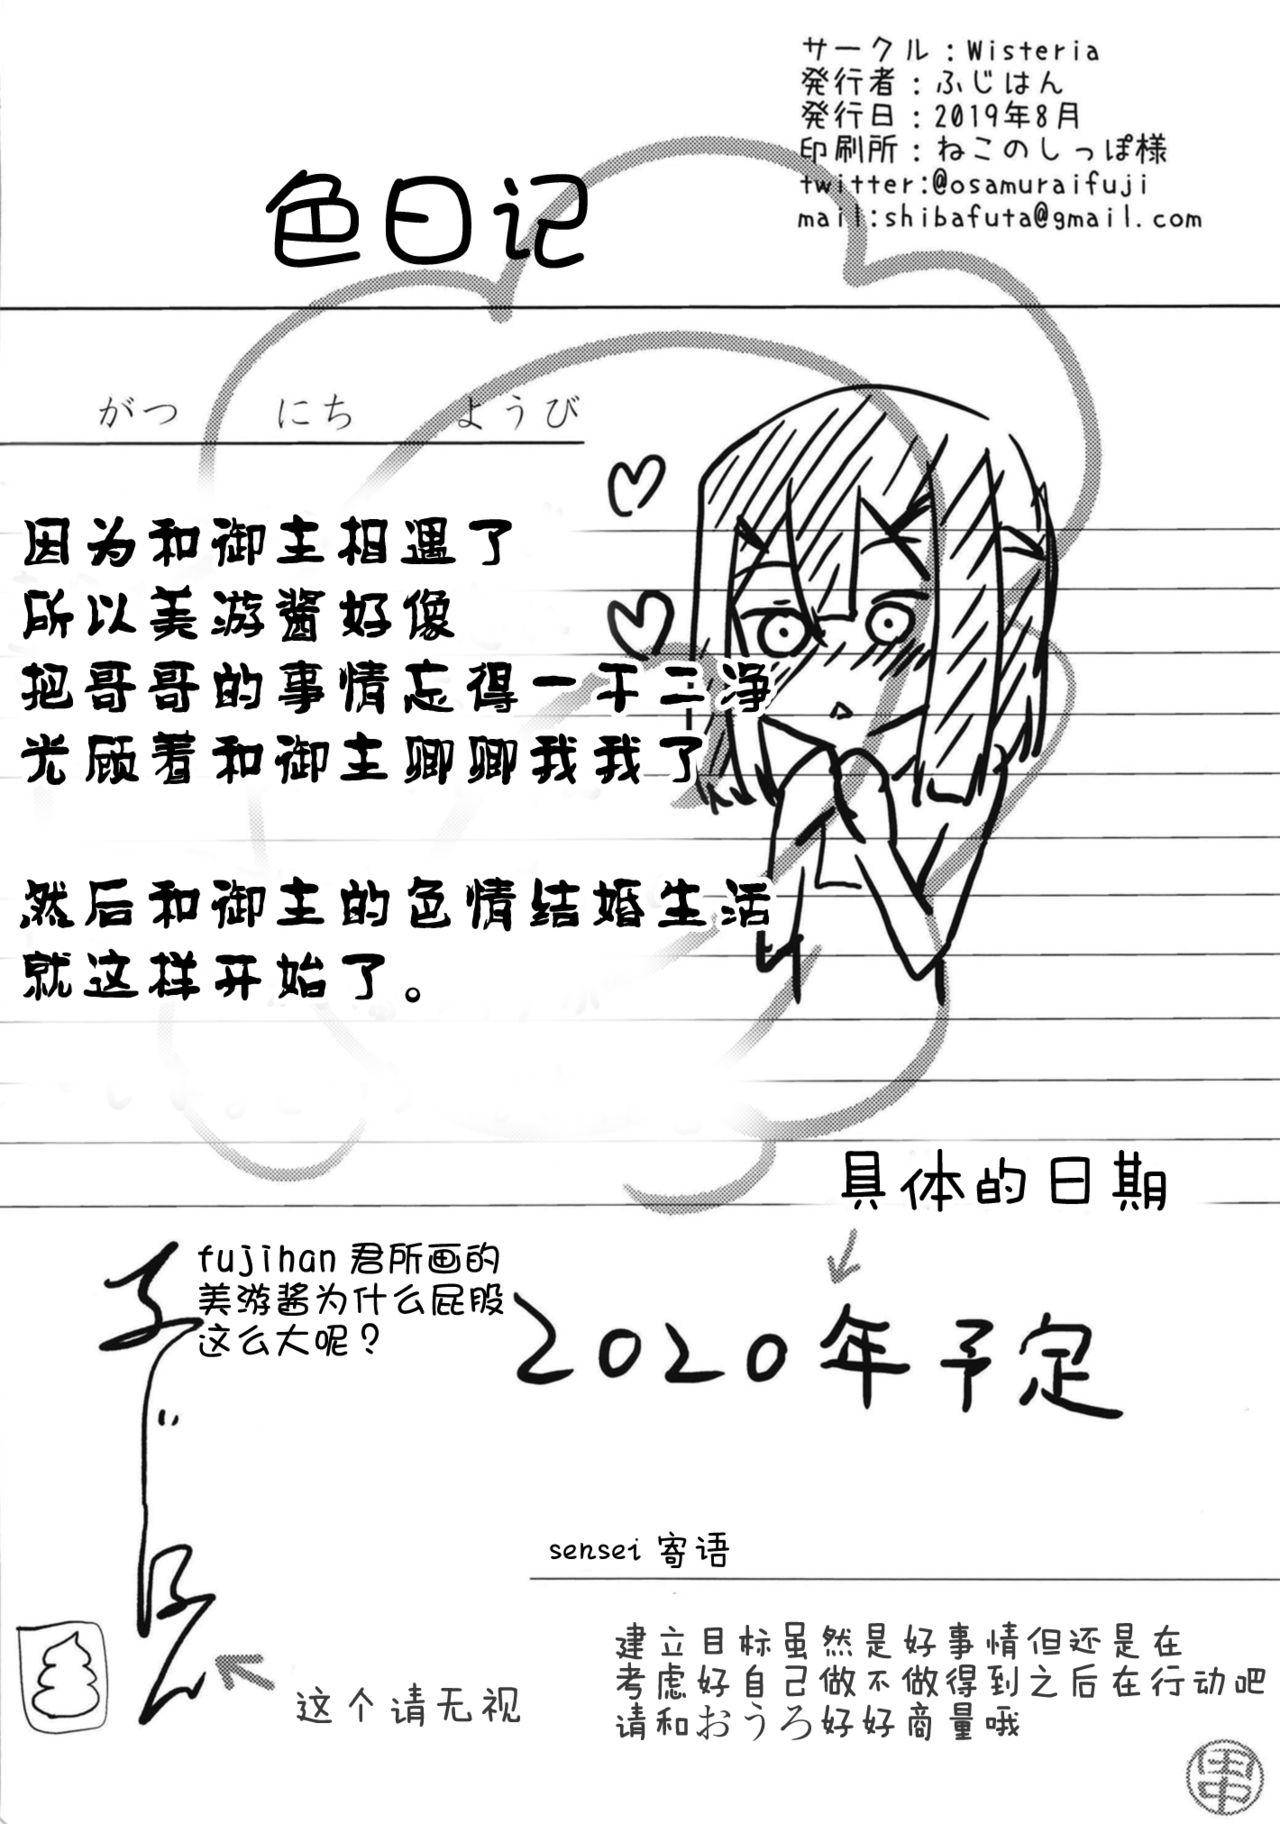 サークル：Wisteria
発行者：ふじはん
発行日：2019年8月
印刷所：ねこのしっぽ様
twitter:@osamuraifuji
mail:shibafuta@gmail.com
色日记
がつ にち ようび
因为和御主相遇了
所以美游酱好像
把哥哥的事情忘得一干二净
光顾着和御主卿卿我我了
然后和御主的色情结婚生活
就这样开始了。
具体的日期
fujihan君所画的
美游酱为什么屁股
这么大呢？
2020年予定
sensei寄语
这个请无视
建立目标虽然是好事情但还是在
考虑好自己做不做得到之后在行动吧
请和おうろ好好商量哦
田中